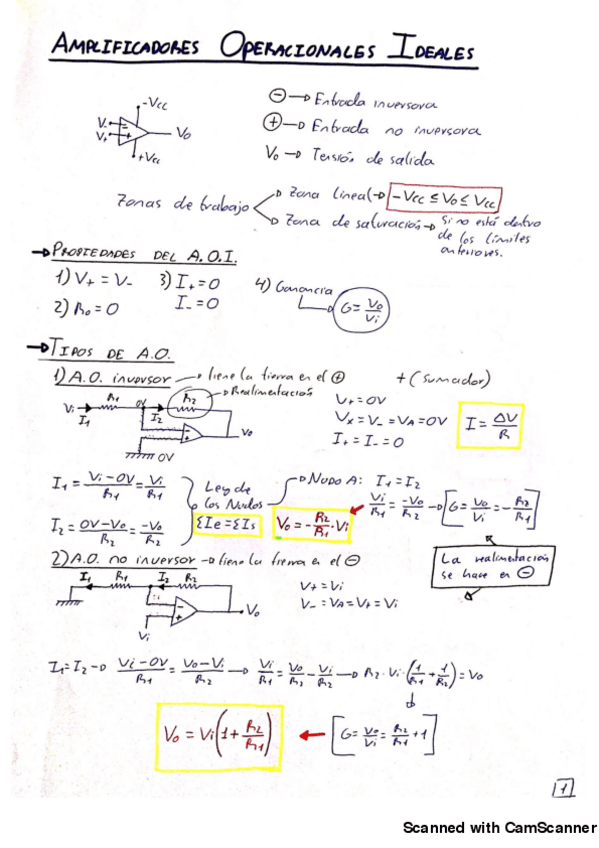 AMPLIFICADORES OPERACIONALES IDEALES
-Vcc
V-
V+
Vo
+Vcc
⊖ → Entrada inversora
⊕ → Entrada no inversora
Vo → Tensión de salida
Zonas de trabajo
Zona lineal → -Vcc ≤ Vo ≤ Vcc
Zona de saturación → Si no está dentro
de los límites
anteriores.
→ PROPIEDADES DEL A.O.I.
1) V+ = V-
3) I+ = 0
I- = 0
4) Ganancia
G = Vo/Vi
2) Ro = 0
→ TIPOS DE A.O.
1) A.O. inversor → tiene la tierra en el ⊕ + (Sumador)
Realimentación
Vi R1 0V R2
I1 I2
Vo
0V
V+ = 0V
Vx = V- = VA = 0V
I+ = I- = 0
I = ΔV/R
I1 = (Vi - 0V)/R1 = Vi/R1
I2 = (0V - Vo)/R2 = -Vo/R2
Ley de
los Nudos
ΣIe = ΣIs
Nudo A: I1 = I2
Vi/R1 = -Vo/R2 → [G = Vo/Vi = -R2/R1]
Vo = -R2/R1 · Vi
La realimentación
se hace en ⊖
2) A.O. no inversor → tiene la tierra en el ⊖
I1 R1 I2 R2
Vo
Vi
V+ = Vi
V- = VA = V+ = Vi
I1 = I2 → (Vi - 0V)/R1 = (Vo - Vi)/R2 → Vi/R1 = Vo/R2 - Vi/R2 → R2 · Vi · (1/R1 + 1/R2) = Vo
Vo = Vi(1 + R2/R1) ← [G = Vo/Vi = R2/R1 + 1]
1
Scanned with CamScanner